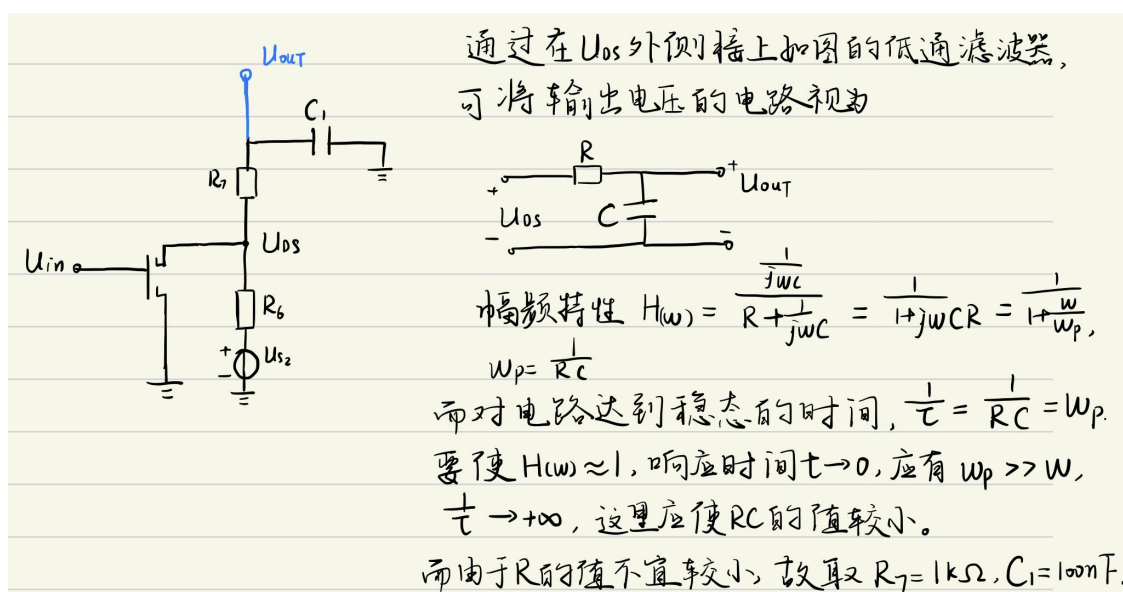 UOUT
C1
R7
UDS
Uin
R6
+
US2
-
通过在UDS外侧接上如图的低通滤波器,
可将输出电压的电路视为
R
+
+
UOUT
UDS
C
-
-
幅频特性 H(w) = \frac{\frac{1}{jwC}}{R+\frac{1}{jwC}} = \frac{1}{1+jwCR} = \frac{1}{1+\frac{w}{wp}},
wp = \frac{1}{RC}
而对电路达到稳态的时间, \frac{1}{τ} = \frac{1}{RC} = wp.
要使H(w)≈1,响应时间t→0,应有 wp >> w,
\frac{1}{τ} →+∞, 这里应使RC的值较小。
而由于R的值不宜较小, 故取 R7=1kΩ, C1=100nF.